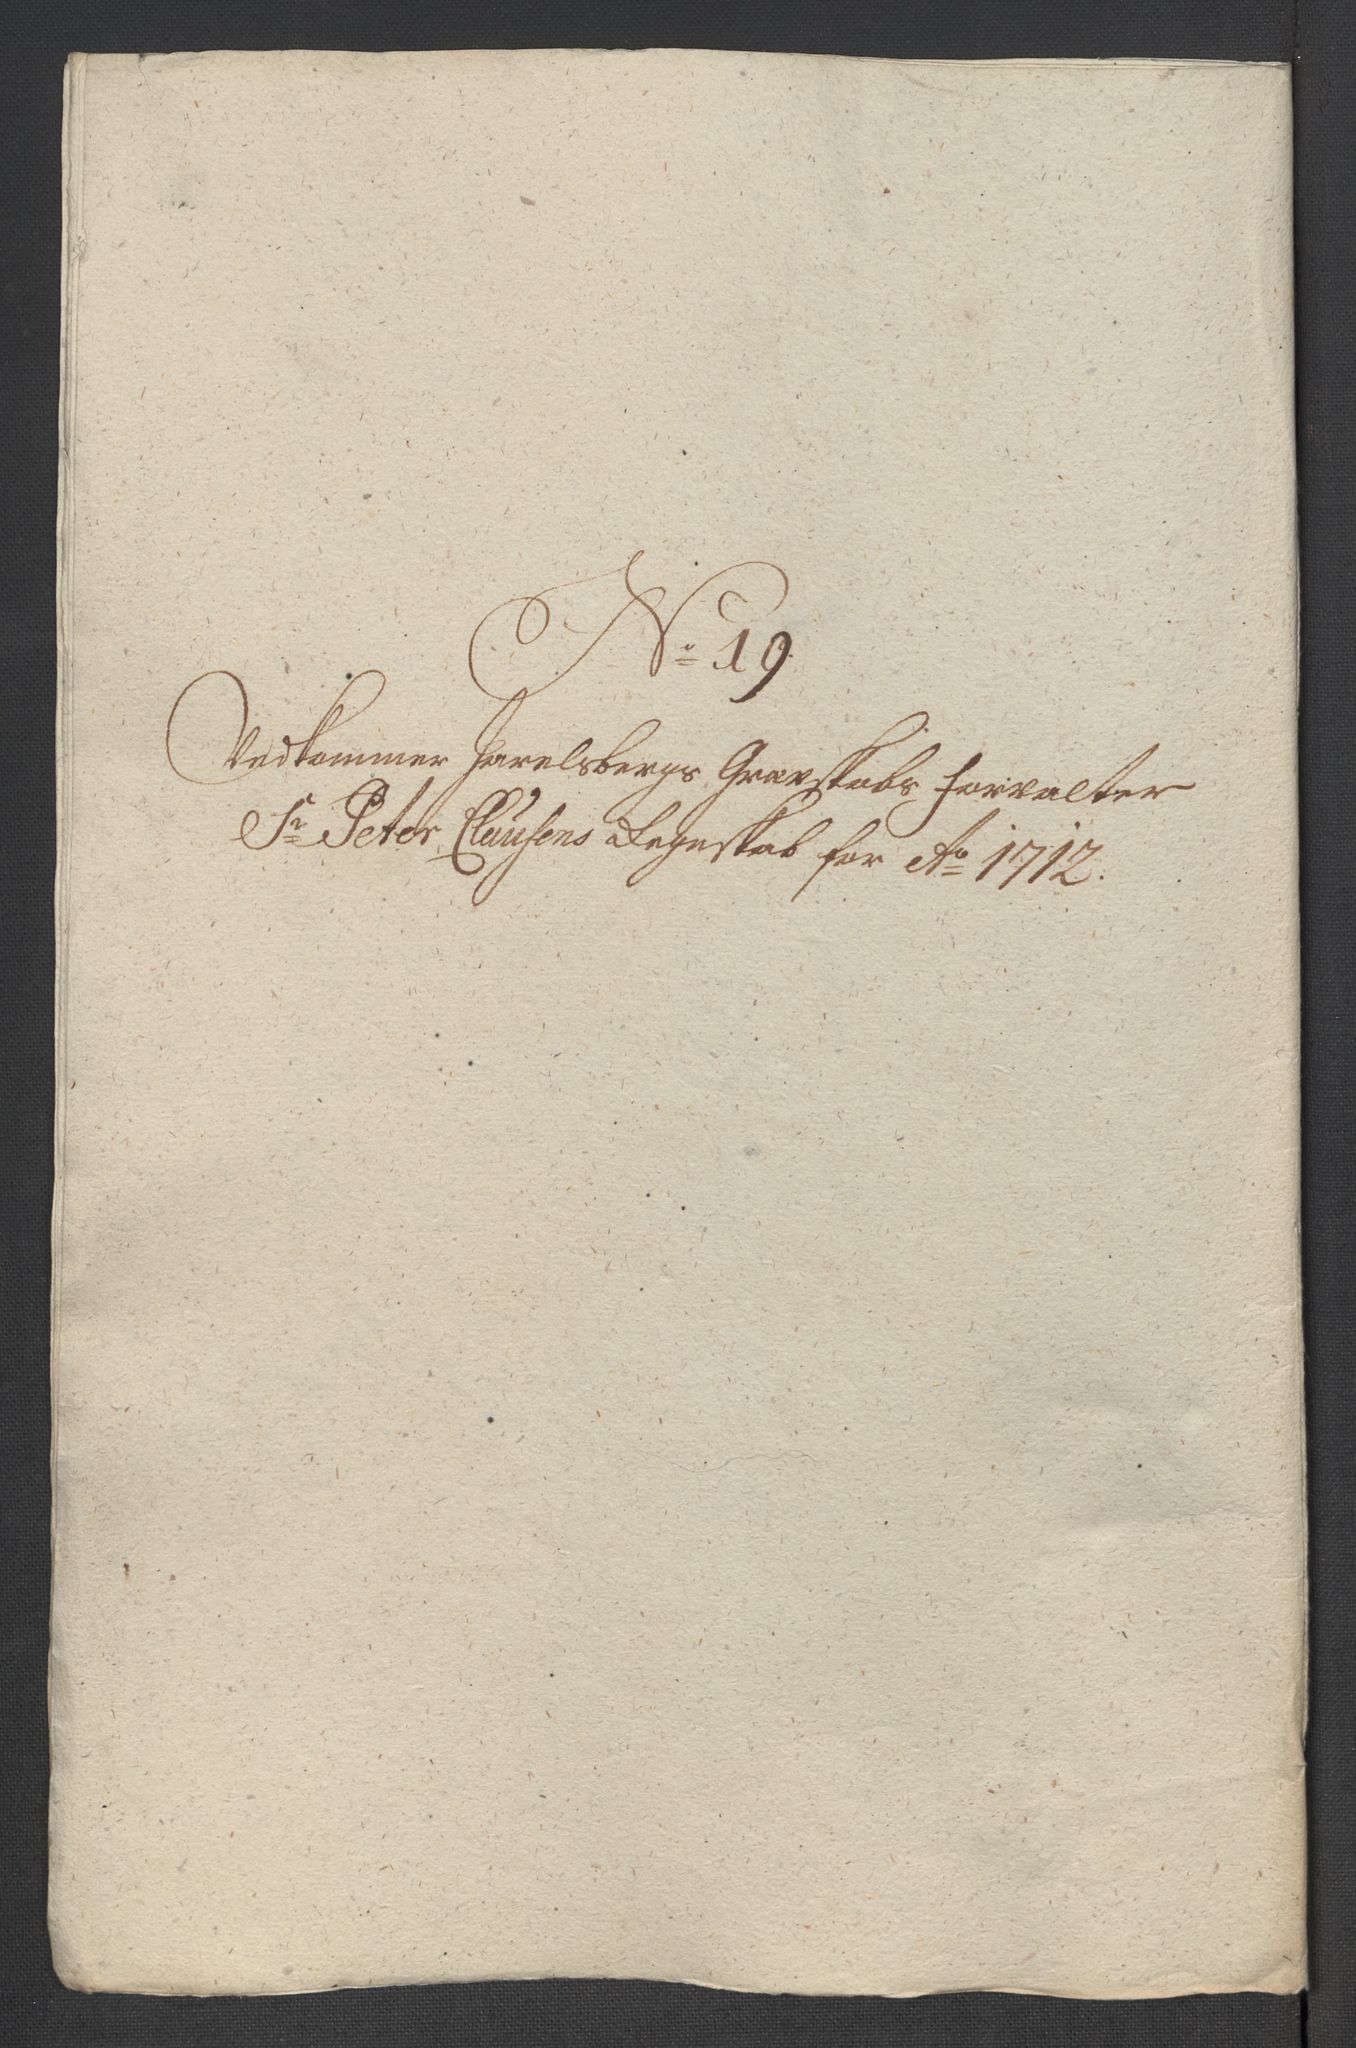 No 19.
Vedkommer Jarelsbergs Gravskabs Forvalter
Sr Peter Clausens Regnskab for Ao 1712.